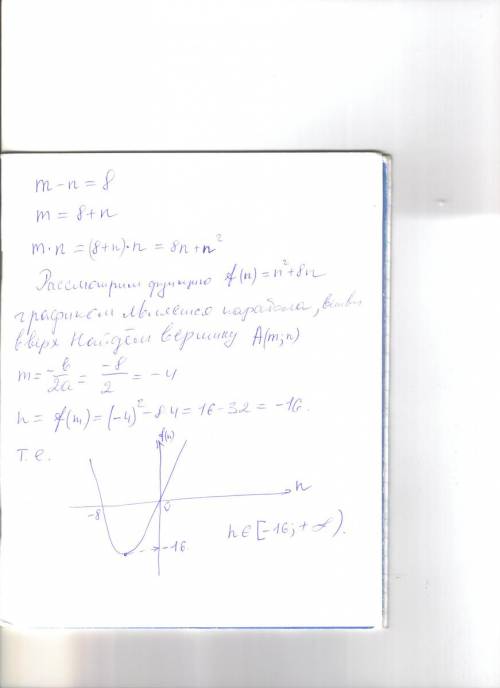 m - n = 8
m = 8 + n
m · n = (8+n) · n = 8n + n²
Рассмотрим функцию f(n) = n² + 8n
графиком является парабола, ветви
вверх Найдём вершину A(m; n)
m = -b/2a = -8/2 = -4
n = f(m) = (-4)² - 8·4 = 16 - 32 = -16.
т.е.
f(n)
n
-8
0
-16
n ∈ [-16; + ∞).